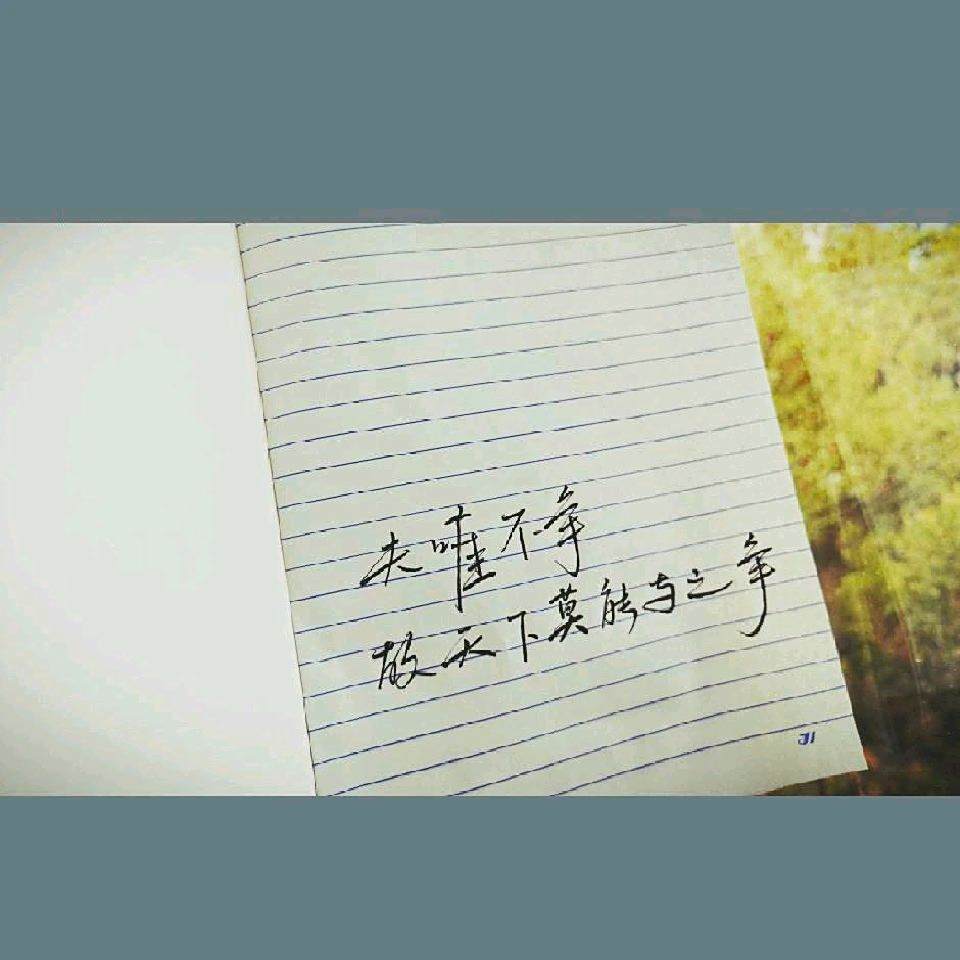 夫唯不争
故天下莫能与之争